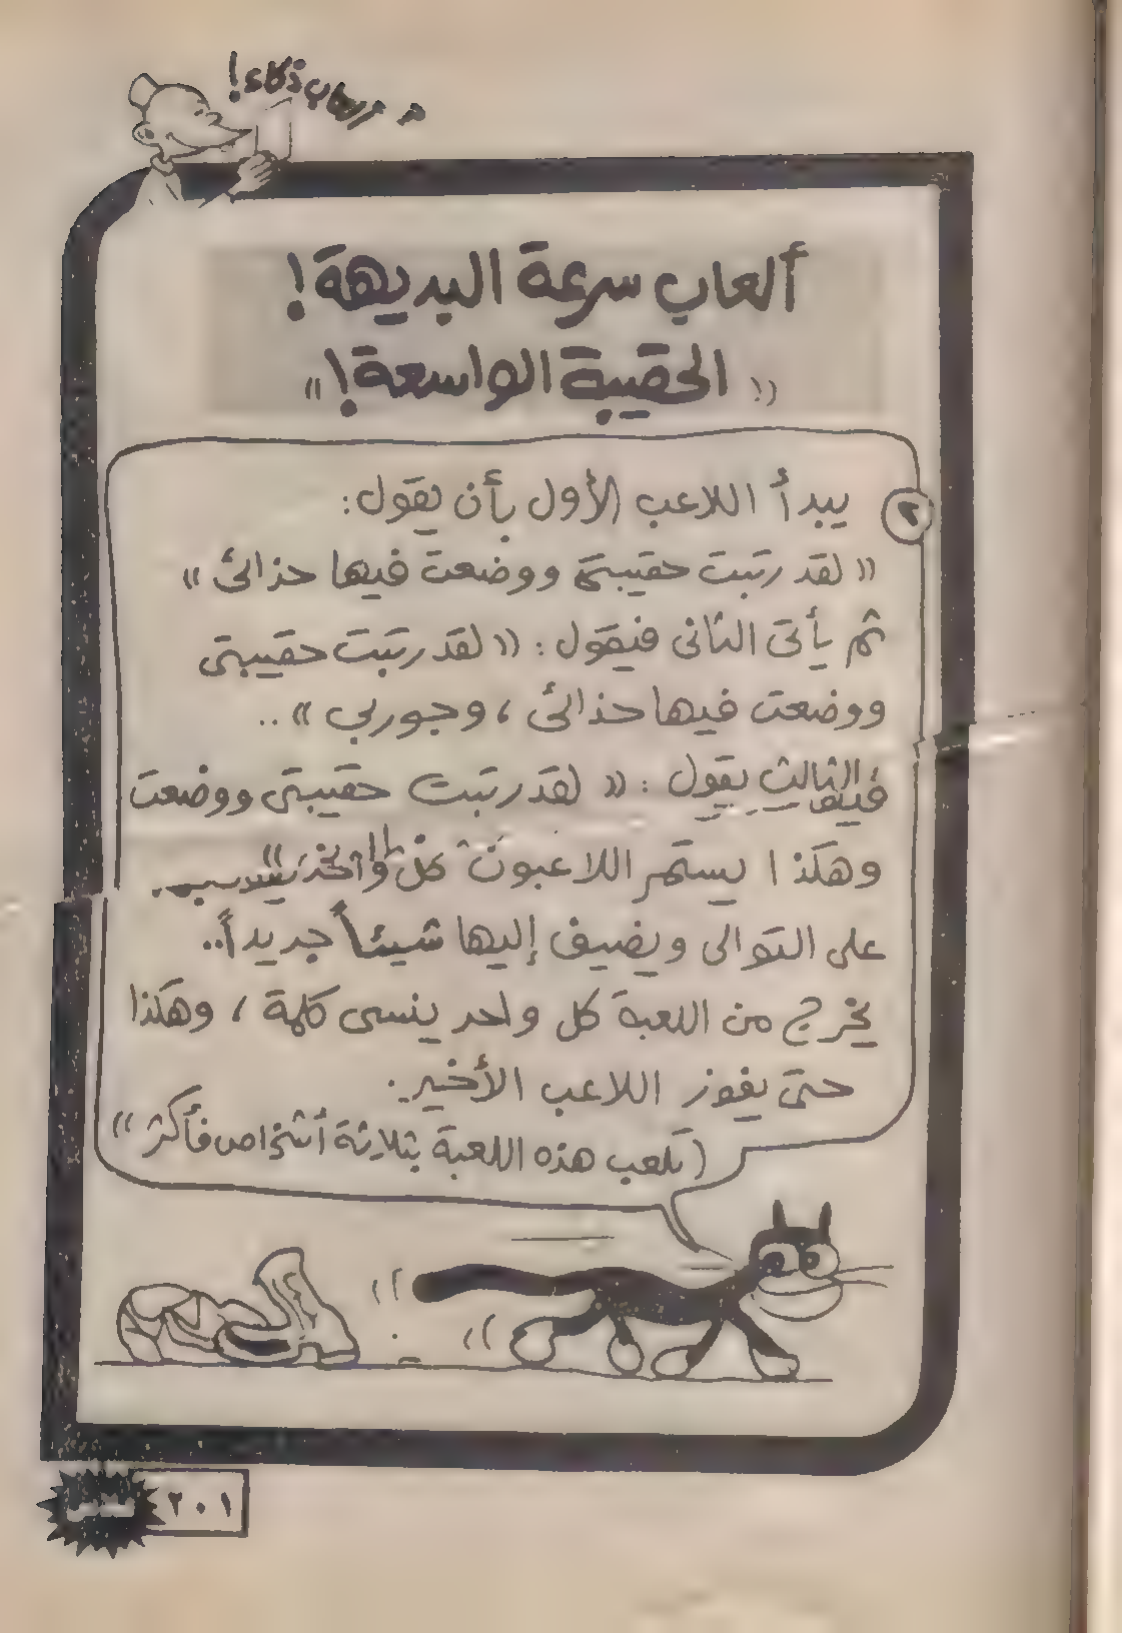 ألعاب ذكاء!
ألعاب سرعة البديهة!
«الحقيبة الواسعة!»
٢ يبدأ اللاعب الأول بأن يقول:
«لقد رتبت حقيبتى ووضعت فيها حذائى»
ثم يأتى الثانى فيقول: «لقد رتبت حقيبتى
ووضعت فيها حذائى، وجوربى»..
الثالث يقول: «لقد رتبت حقيبتى ووضعت
وهكذا يستمر اللاعبون كل واحد
على التوالى ويضيف إليها شيئاً جديداً..
يخرج من اللعبة كل واحد ينسى كلمة، وهكذا
حتى يفوز اللاعب الأخير.
(تلعب هذه اللعبة بثلاثة أشخاص فأكثر»
٢٠١